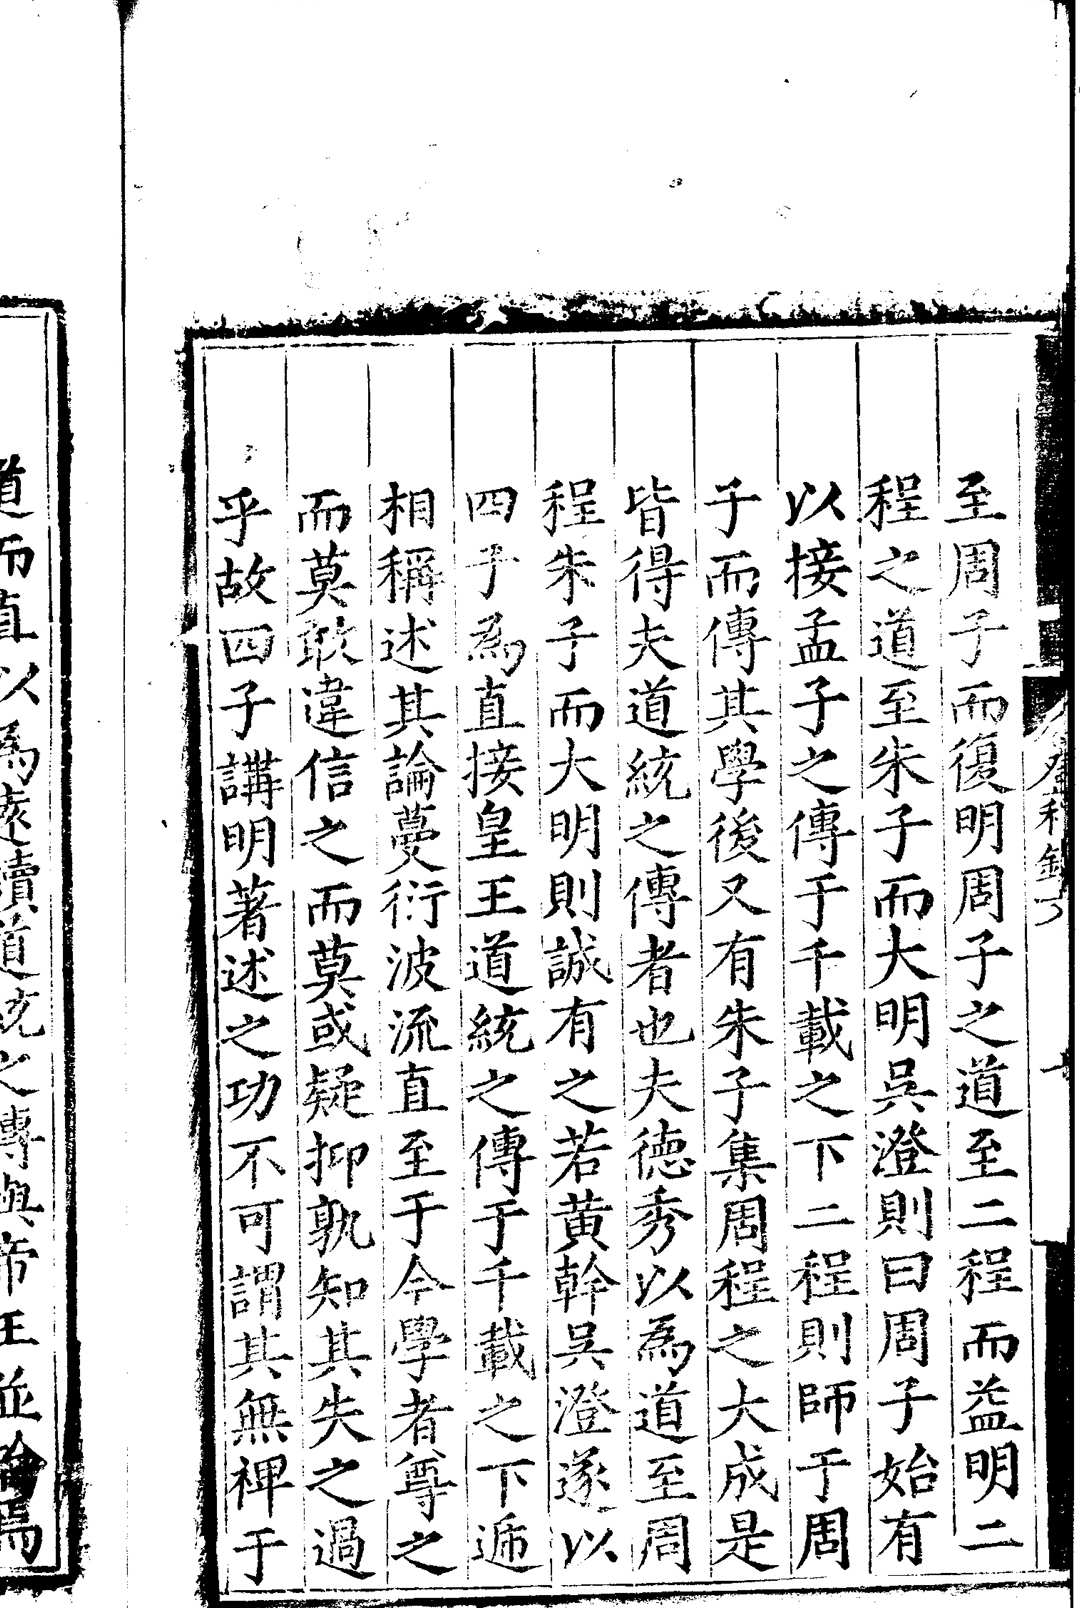 至周子而復明周子之道至二程而益明二
程之道至朱子而大明吳澄則曰周子始有
以接孟子之傳于千載之下二程則師于周
子而傳其學後又有朱子集周程之大成是
皆得夫道統之傳者也夫德秀以為道至周
程朱子而大明則誠有之若黄幹吳澄遂以
四子為直接皇王道統之傳于千載之下遞
相稱述其論蔓衍波流直至于今學者尊之
而莫敢違信之而莫或疑抑孰知其失之過
乎故四子講明著述之功不可謂其無裨于
道而直以為遠續道統之傳與帝王並論焉